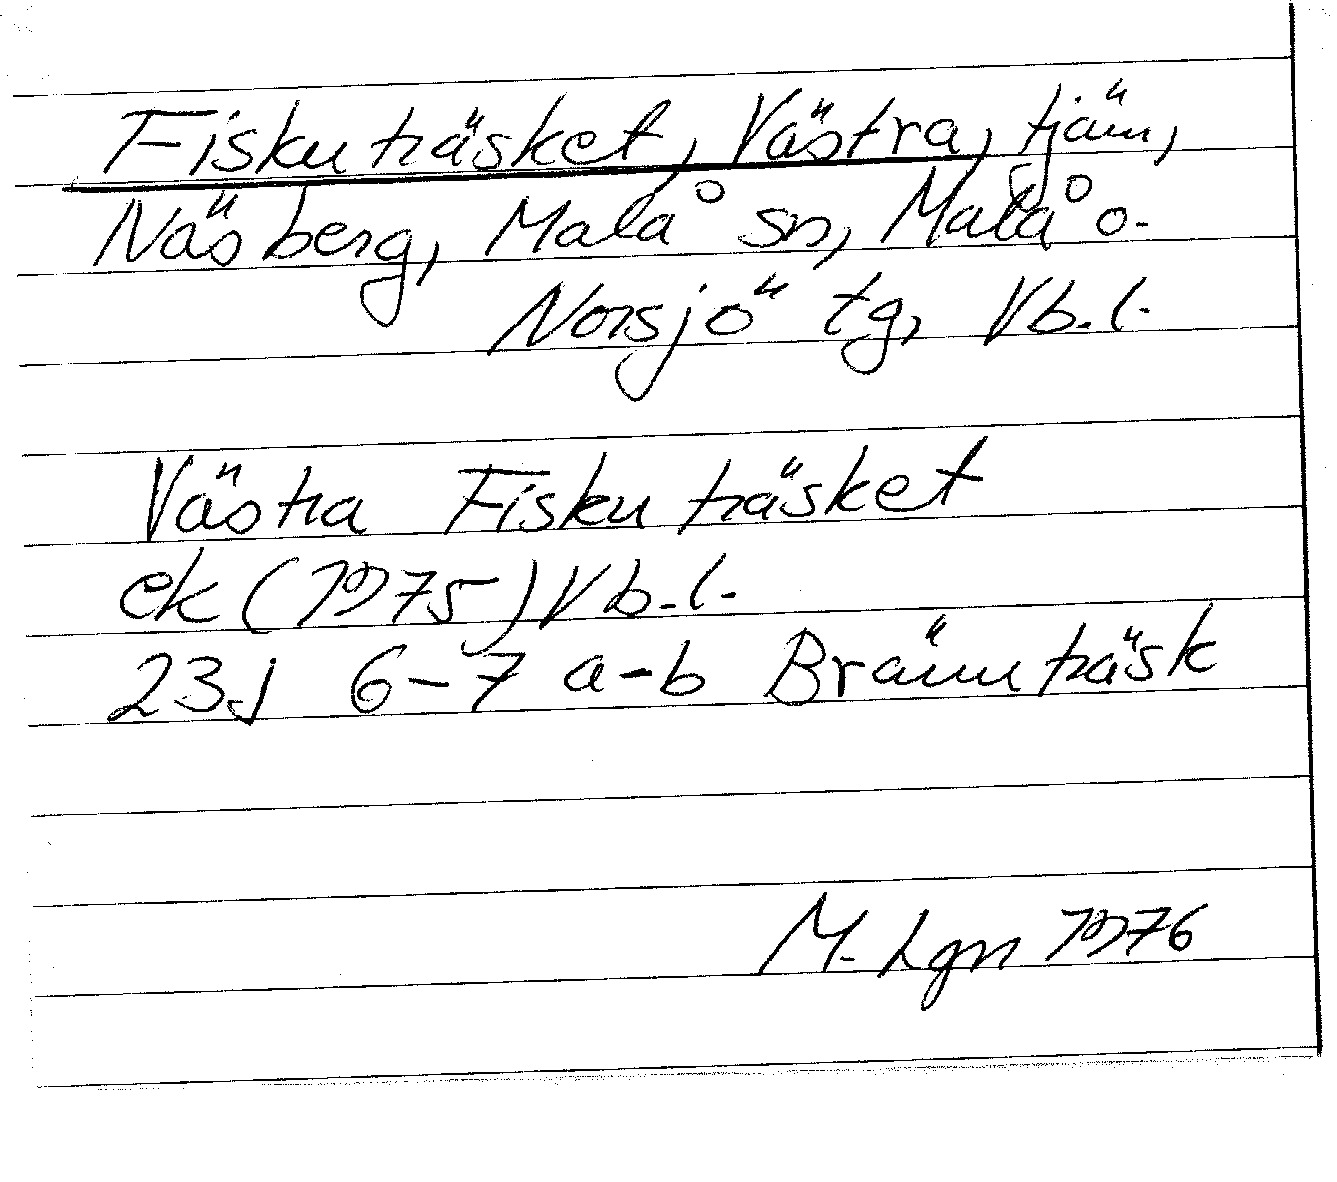 Fiskuträsket, Västra, tjärn,
Näsberg, Malå sn, Malå o.
Norsjö tg, Vb.l.
Västra Fiskuträsket
ek (1975) Vb.l.
23J 6-7 a-b Brännträsk
M. Lgn 1976